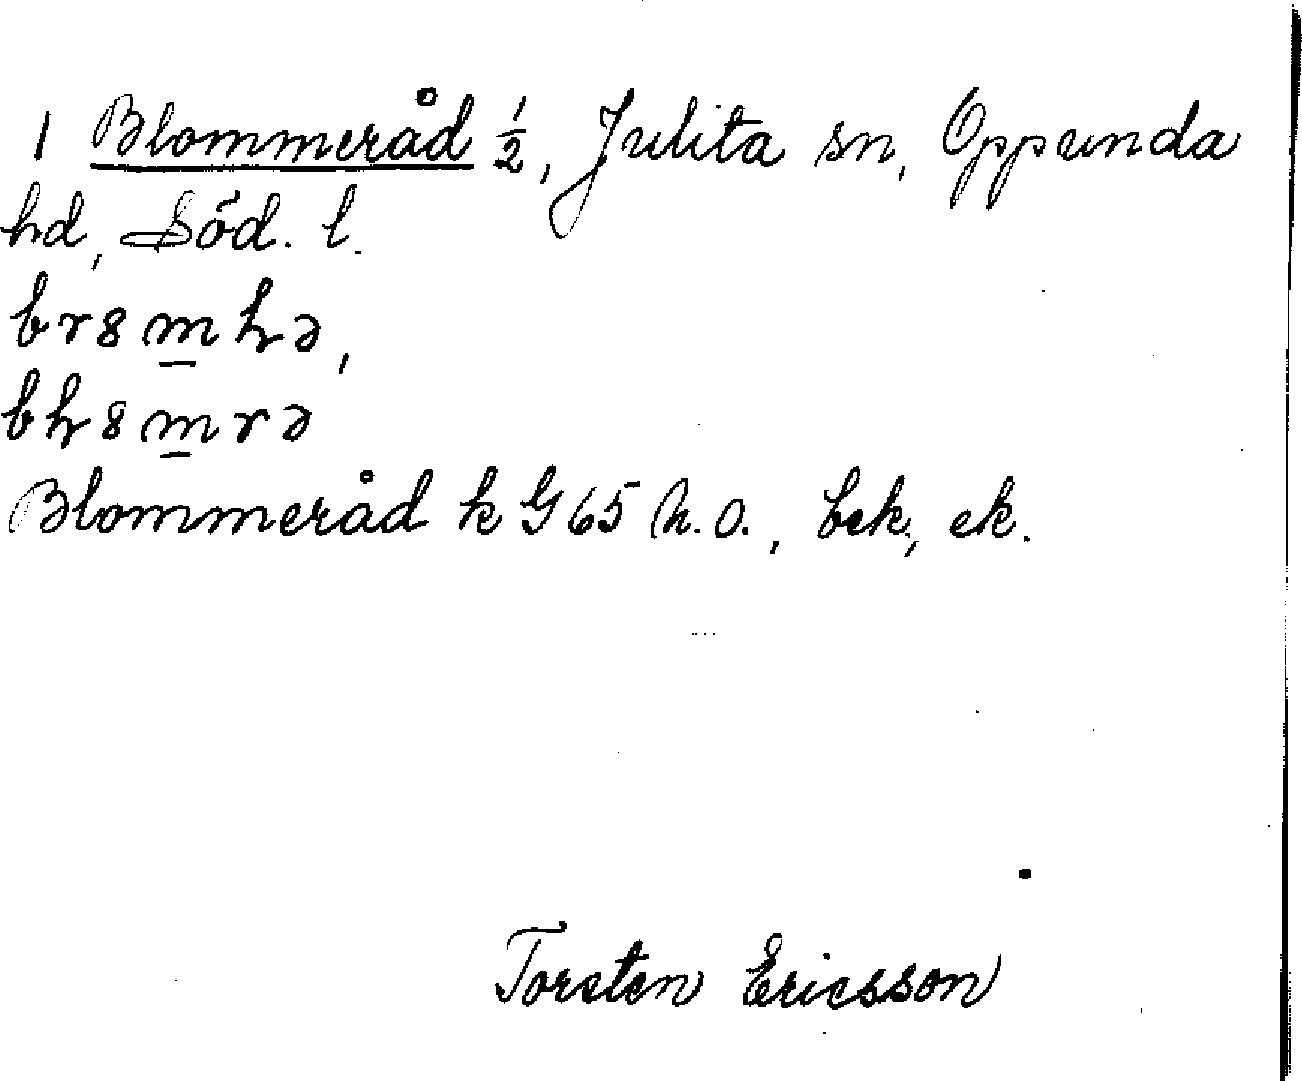 1 Blommeråd ½, Julita sn, Oppunda
hd, Söd. l.
Blommeråd k G 65 n.o., bek, ek.
Torsten Ericsson